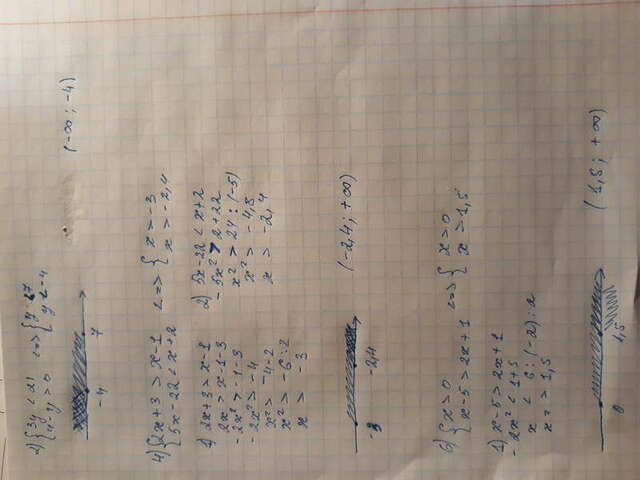 2) {3y < 21 <=> {y < 7
y < -4
-4 7
(-∞; -4)
4) {2x+3 > x-1 <=> {x > -3
{5x-22 < x+2 x > -2,4
1) 2x+3 > x-1
2x > x-1-3
-2x² > -1-3
-2x² > -4
x² > -4-2
x² > -6:2
x > -3
2) 5x-22 < x+2
-5x² > 2+22
x² > 24:(-5)
x² > -4,8
x > -2,4
-3 -2,4
(-2,4; +∞)
6) {x > 0 <=> {x > 0
{x-5 > 2x+1 x > 1,5
1) x-5 > 2x+1
-2x² < 1+5
x < 6:(-2):2
x > 1,5
0 1,5
(1,5; +∞)